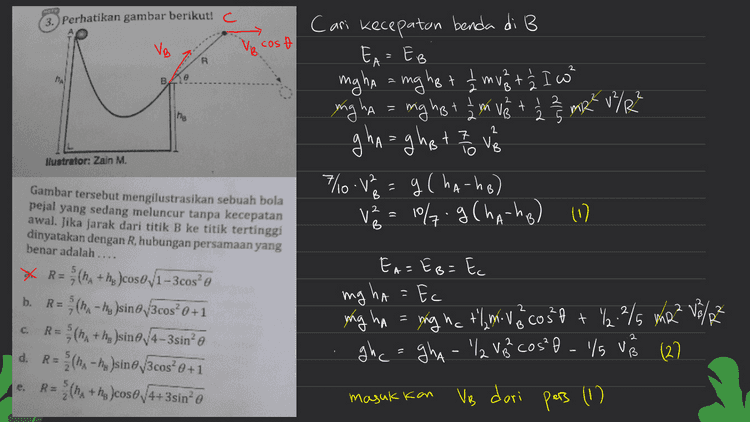 3. Perhatikan gambar berikut!
A
C
V_B
V_B cos θ
R
B
θ
h_A
h_B
Ilustrator: Zain M.
Gambar tersebut mengilustrasikan sebuah bola
pejal yang sedang meluncur tanpa kecepatan
awal. Jika jarak dari titik B ke titik tertinggi
dinyatakan dengan R, hubungan persamaan yang
benar adalah . . . .
a. R = 5/7 (h_A + h_B)cosθ√(1−3cos²θ)
b. R = 5/7 (h_A − h_B)sinθ√(3cos²θ+1)
c. R = 5/7 (h_A + h_B)sinθ√(4−3sin²θ)
d. R = 5/2 (h_A − h_B)sinθ√(3cos²θ+1)
e. R = 5/2 (h_A + h_B)cosθ√(4+3sin²θ)
Cari kecepatan benda di B
E_A = E_B
mgh_A = mgh_B + 1/2 mv_B² + 1/2 I ω²
mgh_A = mgh_B + 1/2 m v_B² + 1/2 2/5 mR² v²/R²
gh_A = gh_B + 7/10 v_B²
7/10 · v_B² = g(h_A − h_B)
v_B² = 10/7 · g(h_A − h_B) (1)
E_A = E_B = E_C
mgh_A = E_C
mgh_A = mgh_C + 1/2 m·v_B² cos²θ + 1/2·2/5 mR² v_B²/R²
gh_C = gh_A − 1/2 v_B² cos²θ − 1/5 v_B² (2)
masukkan v_B dari pers (1)